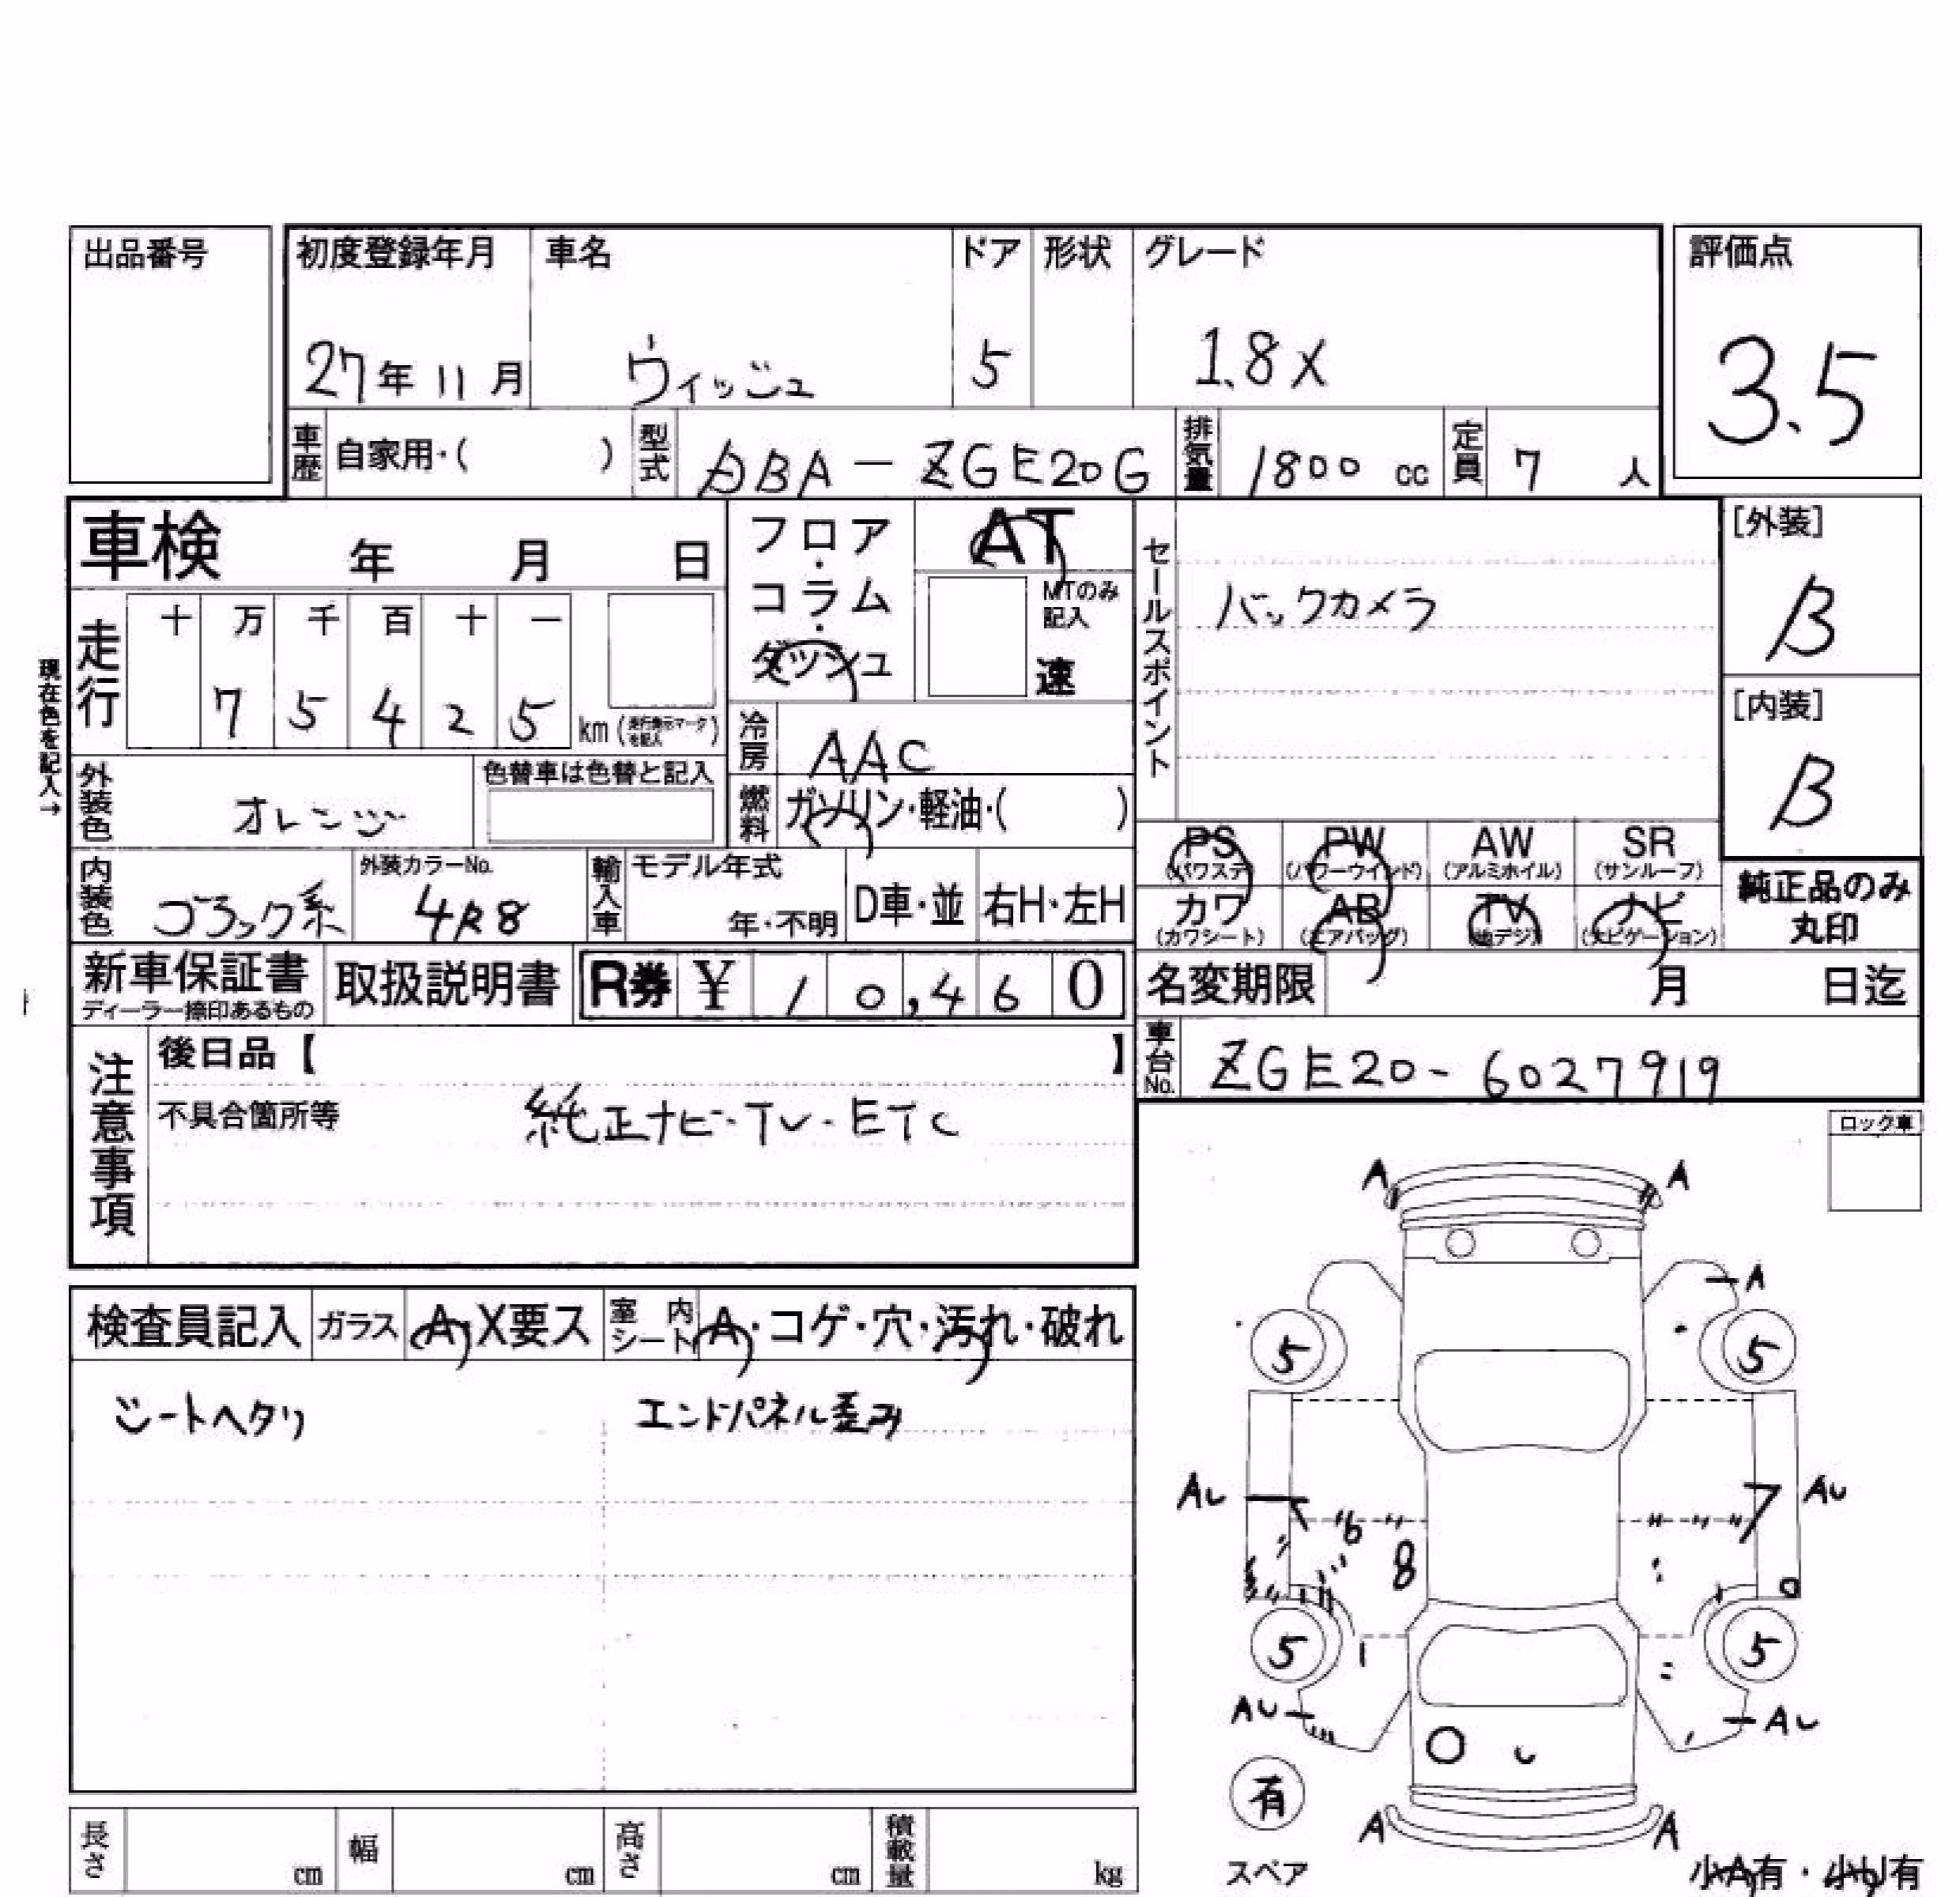 出品番号 初度登録年月 車名 ドア 形状 グレード 評価点
27年11月 ウィッシュ 5 1.8X 3.5
車歴 自家用・( ) 型式 DBA-ZGE20G 排気量 1800 cc 定員 7 人
車検 年 月 日 フロア・コラム・ダッシュ AT セールスポイント [外装]
MTのみ記入 速 バックカメラ B
現在色を記入→
走行 十 万 千 百 十 一
7 5 4 2 5 km (走行表示マークを記入) [内装]
冷房 AAC B
外装色 オレンジ 色替車は色替と記入 燃料 ガソリン・軽油・( )
PS (パワステ) PW (パワーウインド) AW (アルミホイル) SR (サンルーフ)
カワ (カワシート) AB (エアバッグ) TV (地デジ) ナビ (ナビゲーション) 純正品のみ丸印
内装色 ブラック系 外装カラーNo. 4R8 輸入車 モデル年式 年・不明 D車・並 右H・左H
新車保証書 ディーラー捺印あるもの 取扱説明書 R券 ¥ 10,460 名変期限 月 日迄
注意事項 後日品【 】 車台No. ZGE20-6027919
不具合箇所等 純正ナビ・TV・ETC
ロック車
検査員記入 ガラス A・X要ス 室内シート A・コゲ・穴・汚れ・破れ
シートヘタリ エンドパネル歪み
A A
A
5 5
AU AU
6
8
5 5
AU AU
有
スペア
A A
長さ cm 幅 cm 高さ cm 積載量 kg
小A有・小U有